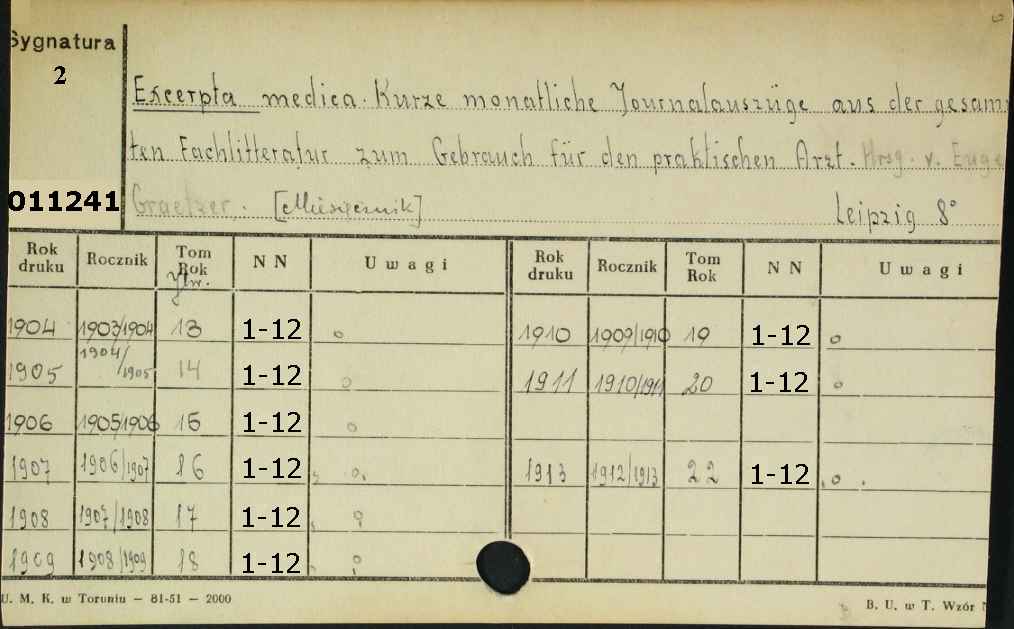 Sygnatura
2
Excerpta medica. Kurze monatliche Journalauszüge aus der gesam
ten Fachlitteratur zum Gebrauch für den praktischen Arzt. Hrsg. v. Euge
011241 Graetzer. [Miesięcznik] Leipzig 8°
Rok druku Rocznik Tom Rok Ytw. N N Uwagi Rok druku Rocznik Tom Rok N N Uwagi
1904 1903/1904 13 1-12 o 1910 1909/1910 19 1-12 o
1905 1904/1905 14 1-12 o 1911 1910/1911 20 1-12 o
1906 1905/1906 15 1-12 o
1907 1906/1907 16 1-12 o 1913 1912/1913 22 1-12 o
1908 1907/1908 17 1-12 o
1909 1908/1909 18 1-12 o
U. M. K. w Toruniu — 81-51 — 2000 B. U. w T. Wzór